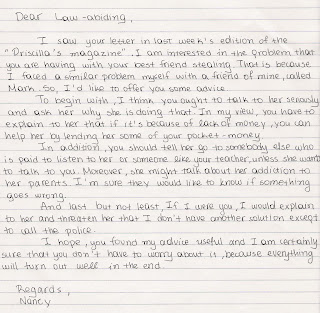 Dear Law-abiding,
I saw your letter in last week's edition of the
"Priscilla's magazine". I am interested in the problem that
you are having with your best friend stealing. That is because
I faced a similar problem myself with a friend of mine, called
Mark. So, I'd like to offer you some advice.
To begin with, I think you ought to talk to her seriously
and ask her why she is doing that. In my view, you have to
explain to her that if it's because of lack of money, you can
help her by lending her some of your pocket-money.
In addition, you should tell her go to somebody else who
is paid to listen to her or someone like your teacher, unless she want
to talk to you. Moreover, she might talk about her addiction to
her parents. I'm sure they would like to know if something
goes wrong.
And last but not least, If I were you, I would explain
to her and threaten her that I don't have another solution except
to call the police.
I hope, you found my advice useful and I am certainly
sure that you don't have to worry about it, because everything
will turn out well in the end.
Regards,
Nancy